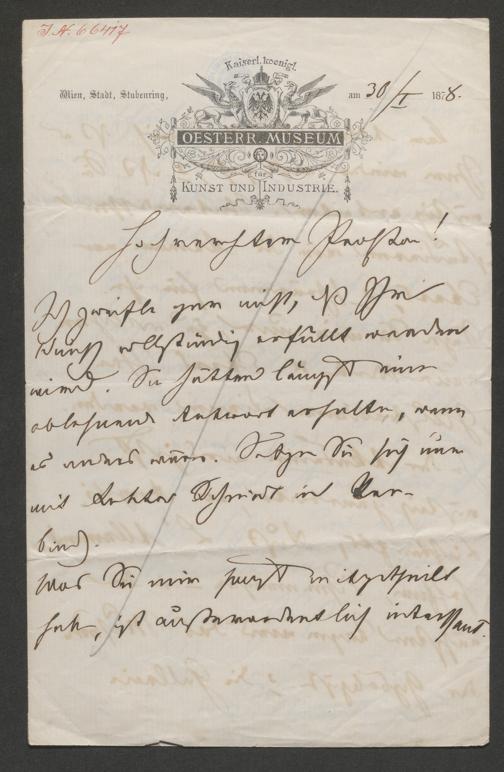 J. N. 66417
Kaiserl. koenigl.
Wien, Stadt, Stubenring, am 30/I 1878.
OESTERR. MUSEUM
für
KUNST UND INDUSTRIE.
Hochverehrter Professor!
Ich zweifle gar nicht, daß Ihr
Wunsch vollständig erfüllt werden
wird. Sie hätten längst eine
ablehnende Antwort erhalten, wenn
es anders wäre. Setzen Sie sich nur
mit Rektor Schmidt in Ver-
bind.
Was Sie mir sonst mitgetheilt
hab, ist außerordentlich interessant.